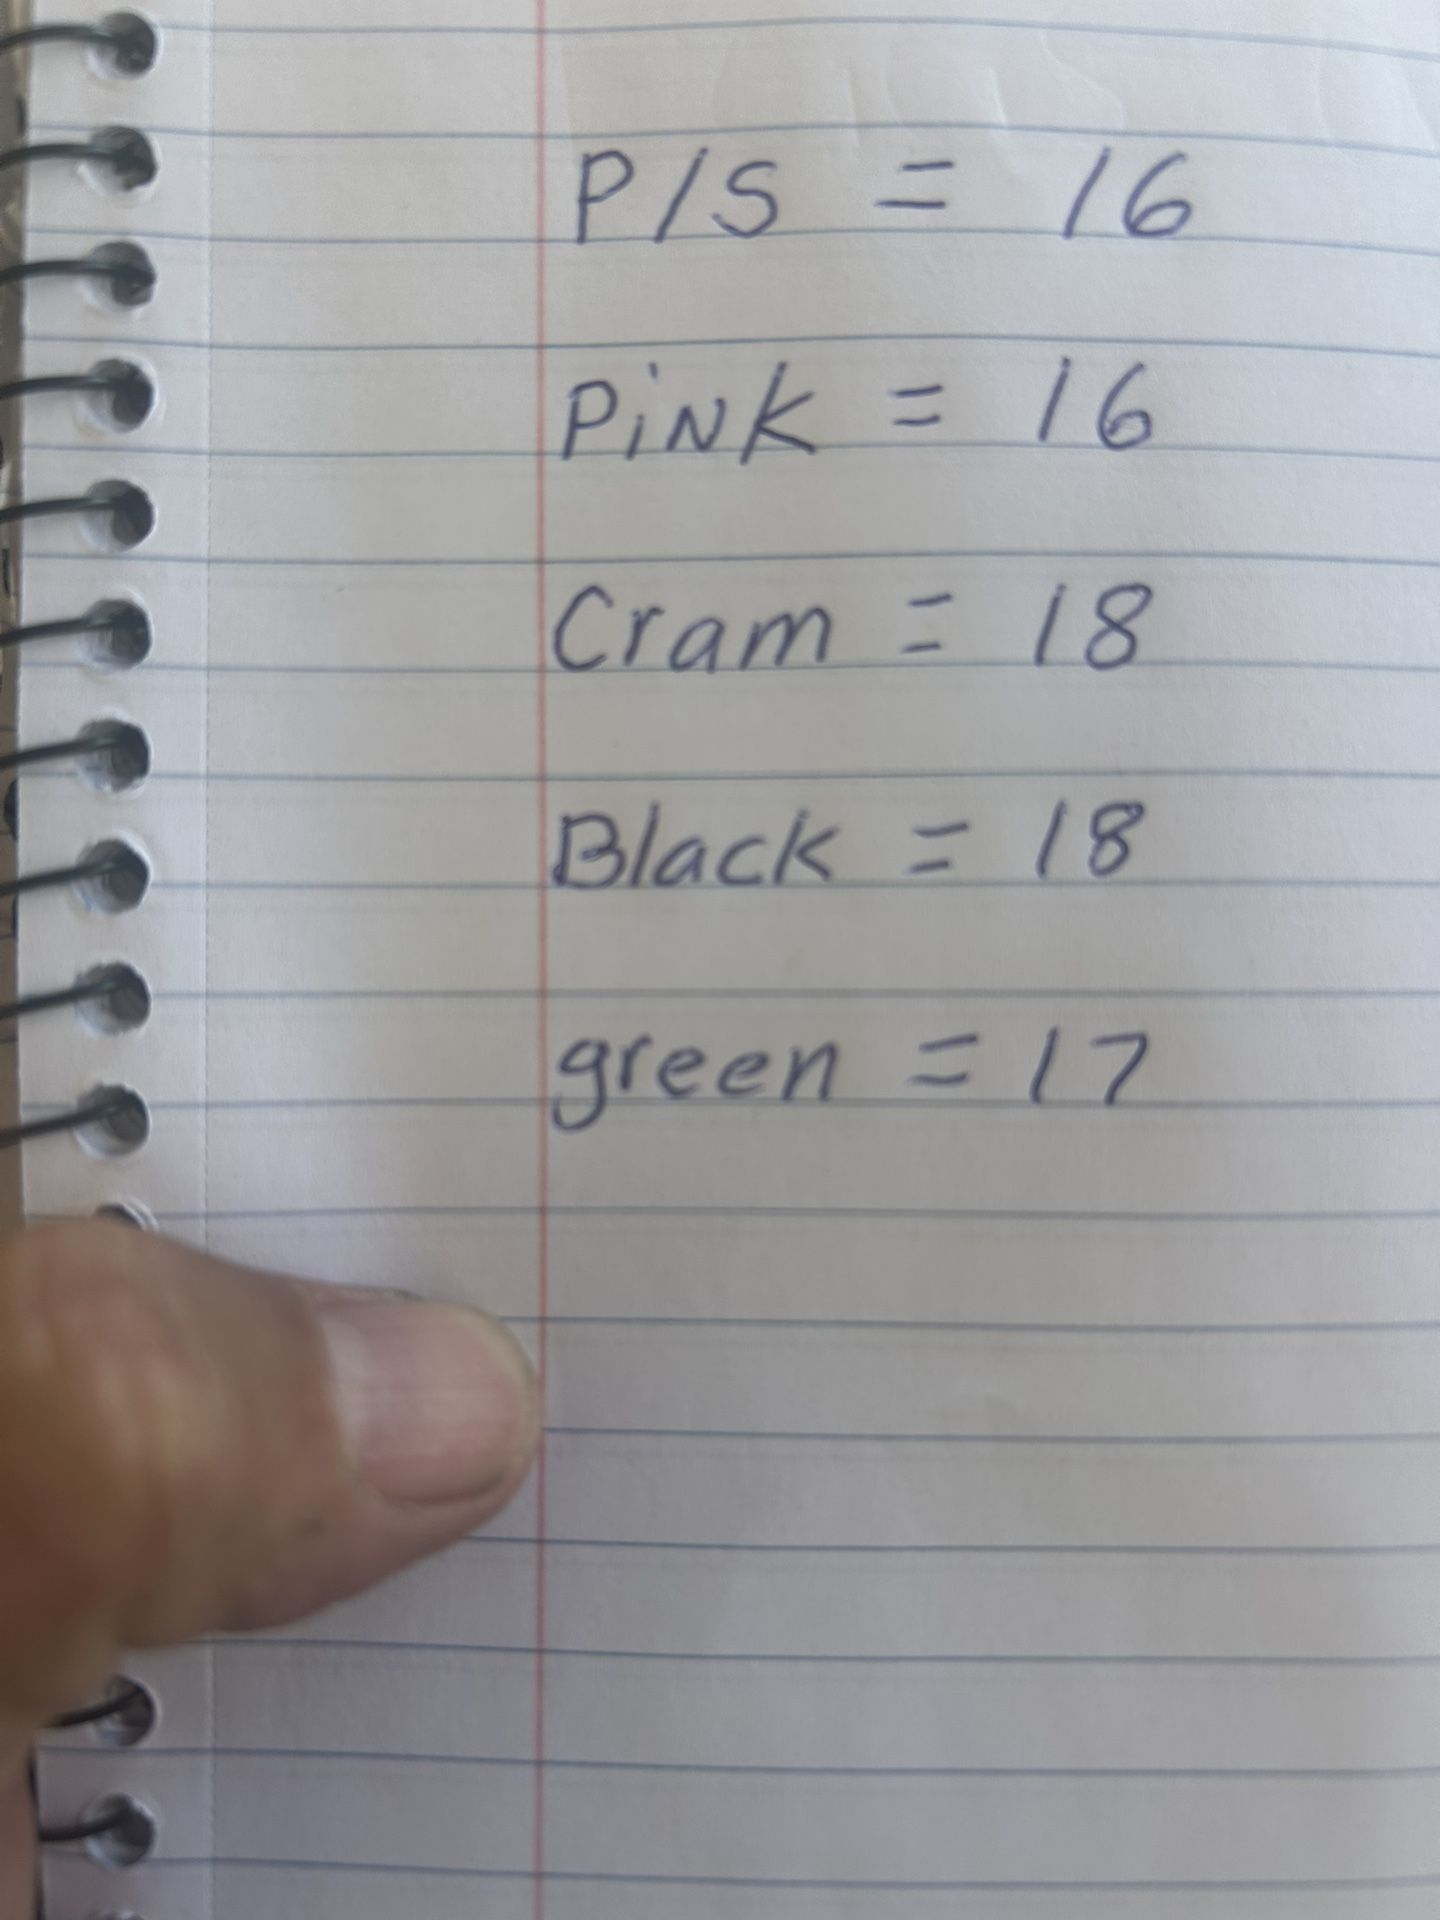 P/S = 16
Pink = 16
Cram = 18
Black = 18
green = 17